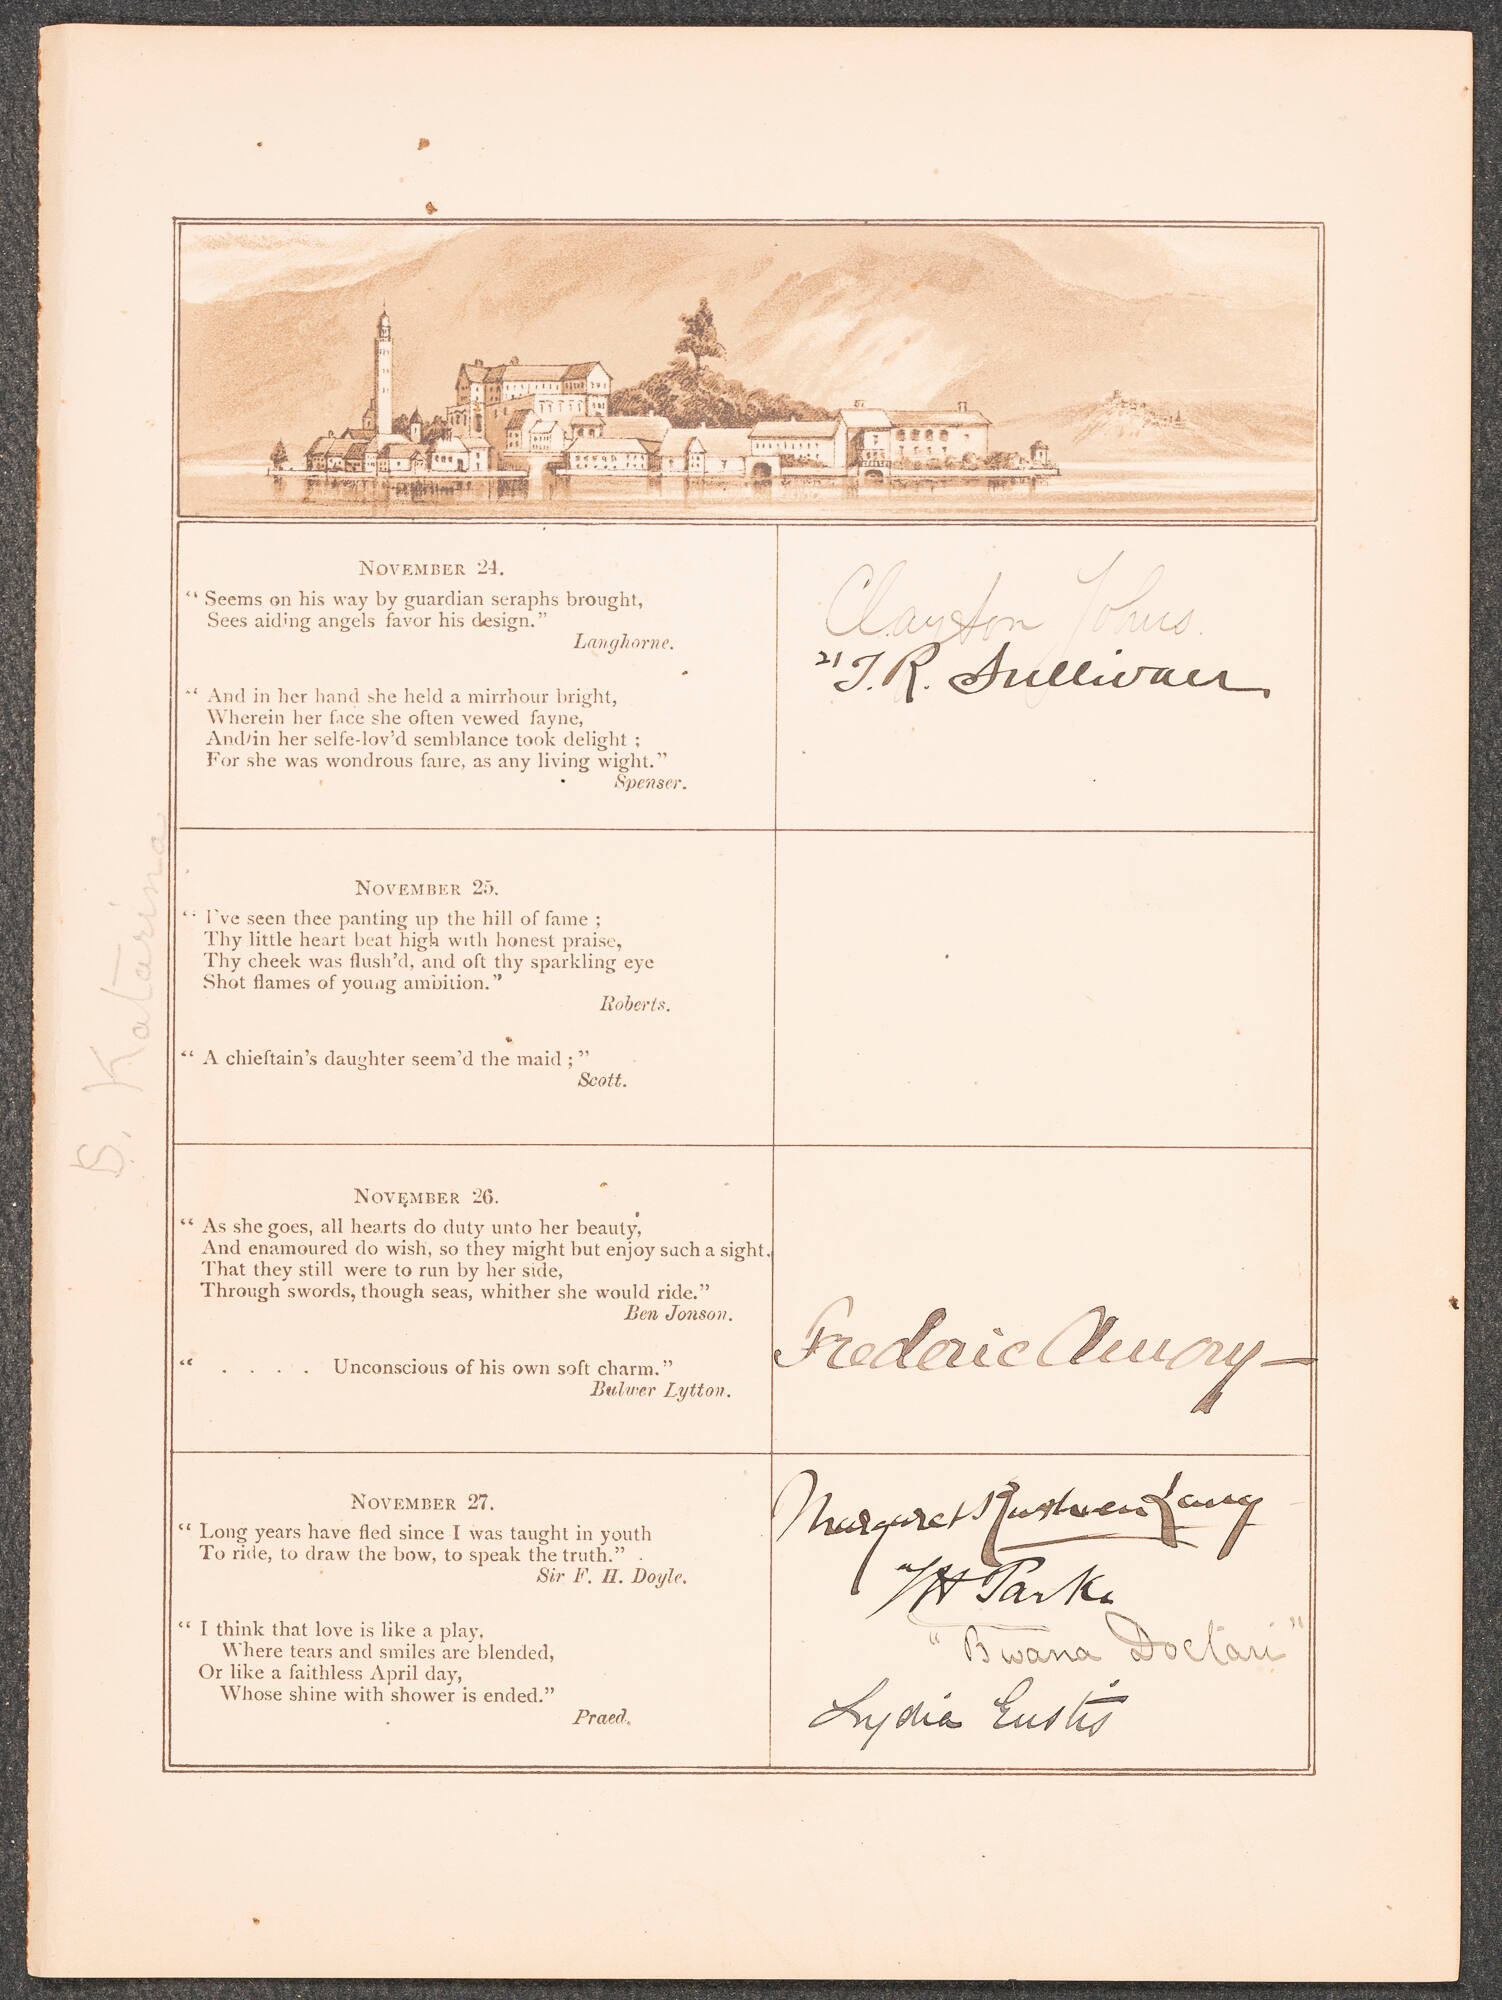 NOVEMBER 24.
" Seems on his way by guardian seraphs brought,
Sees aiding angels favor his design."
Langhorne.
" And in her hand she held a mirrhour bright,
Wherein her face she often vewed fayne,
And in her selfe-lov'd semblance took delight ;
For she was wondrous faire, as any living wight."
Spenser.
Clayton Johns.
21 T. R. Sullivan
NOVEMBER 25.
" I've seen thee panting up the hill of fame ;
Thy little heart beat high with honest praise,
Thy cheek was flush'd, and oft thy sparkling eye
Shot flames of young ambition."
Roberts.
" A chieftain's daughter seem'd the maid ; "
Scott.
S. Katarina
NOVEMBER 26.
" As she goes, all hearts do duty unto her beauty,
And enamoured do wish, so they might but enjoy such a sight,
That they still were to run by her side,
Through swords, though seas, whither she would ride."
Ben Jonson.
" . . . . Unconscious of his own soft charm."
Bulwer Lytton.
Frederic Amory
NOVEMBER 27.
" Long years have fled since I was taught in youth
To ride, to draw the bow, to speak the truth."
Sir F. H. Doyle.
" I think that love is like a play,
Where tears and smiles are blended,
Or like a faithless April day,
Whose shine with shower is ended."
Praed.
Margaret Ruthven Lang
H Parke
" Bwana Doctari "
Lydia Eustis